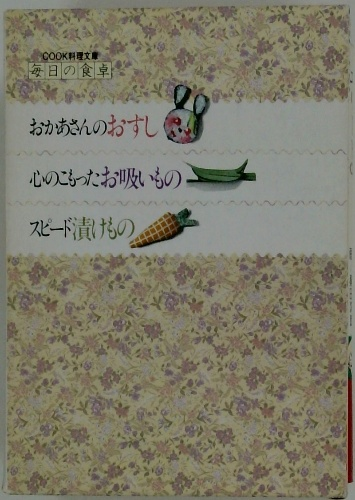 COOK料理文庫
毎日の食卓
おかあさんのおすし
心のこもったお吸いもの
スピード漬けもの